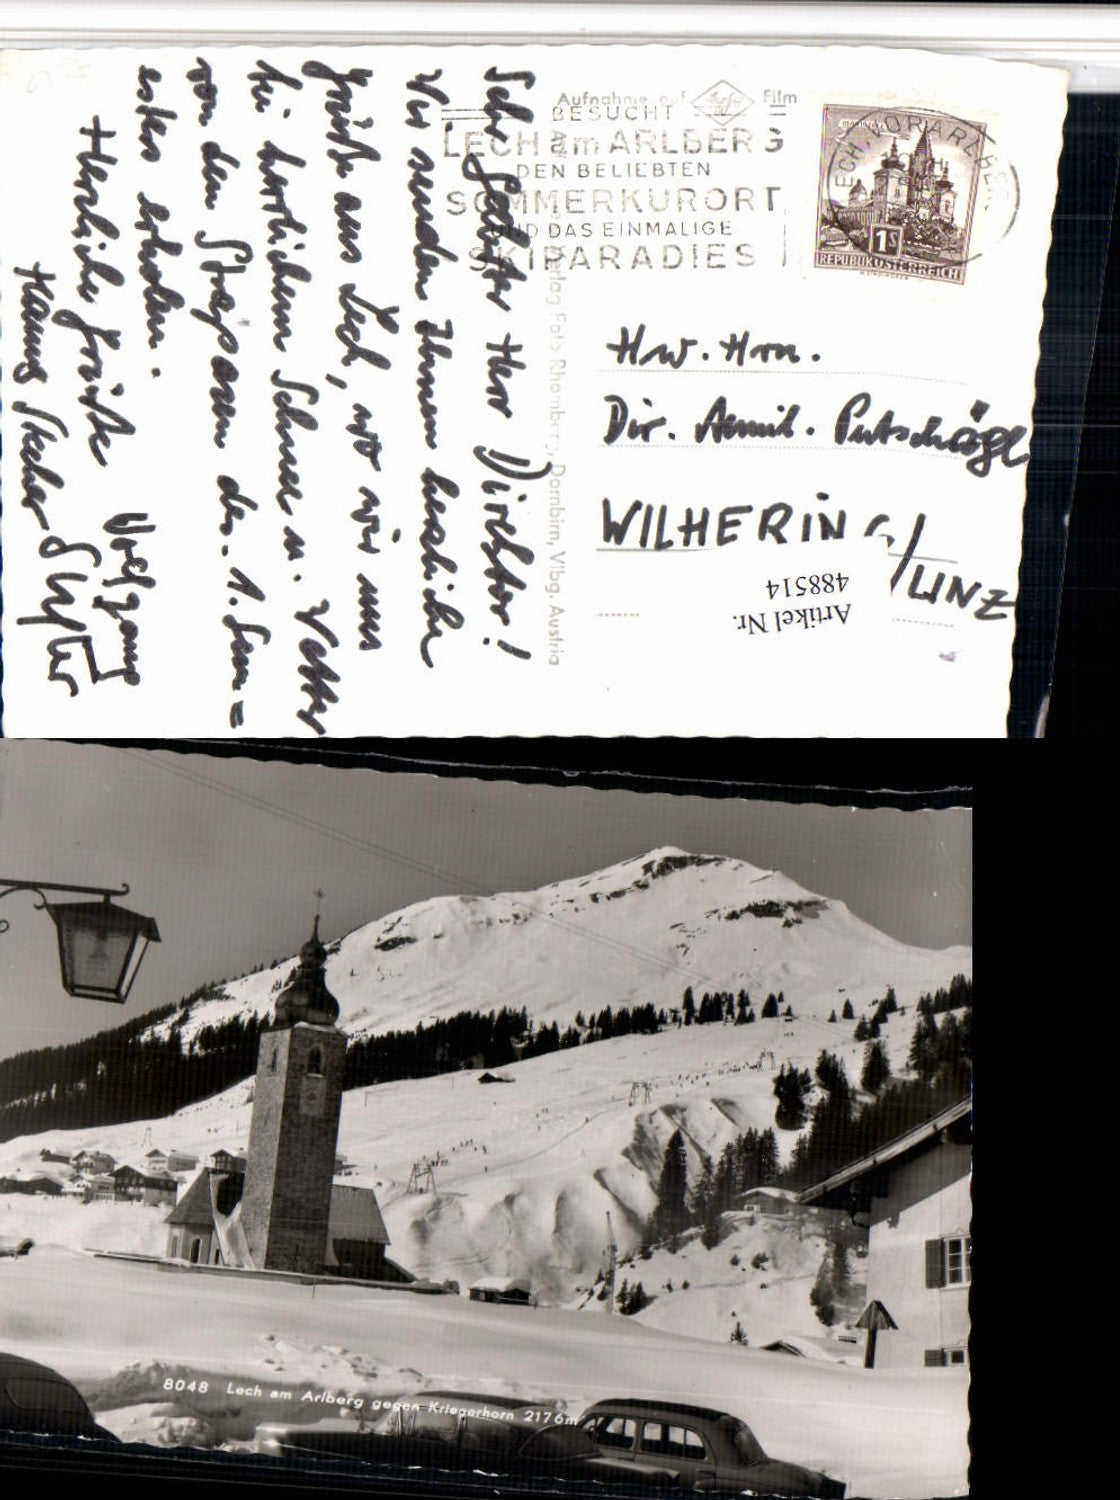 Aufnahme auf Agfa Film
BESUCHT
LECH am ARLBERG
DEN BELIEBTEN
SOMMERKURORT
UND DAS EINMALIGE
SKIPARADIES
LECH, VORARLBERG
1S
REPUBLIK ÖSTERREICH
Sehr Geehrter Herr Direktor!
Wir senden Ihnen herzliche
Grüße aus Lech, wo wir uns
bei herrlichem Schnee u. Wetter
von den Strapazen des 1. Sem=
esters erholen.
Herzliche Grüße Wolfgang
Hannes
Verlag Foto Rhomberg, Dornbirn, Vlbg. Austria
Hw. Hrn.
Dir. Amil. Putschögl
WILHERING/
LINZ
Artikel Nr.
488514
8048 Lech am Arlberg gegen Kriegerhorn 2176m